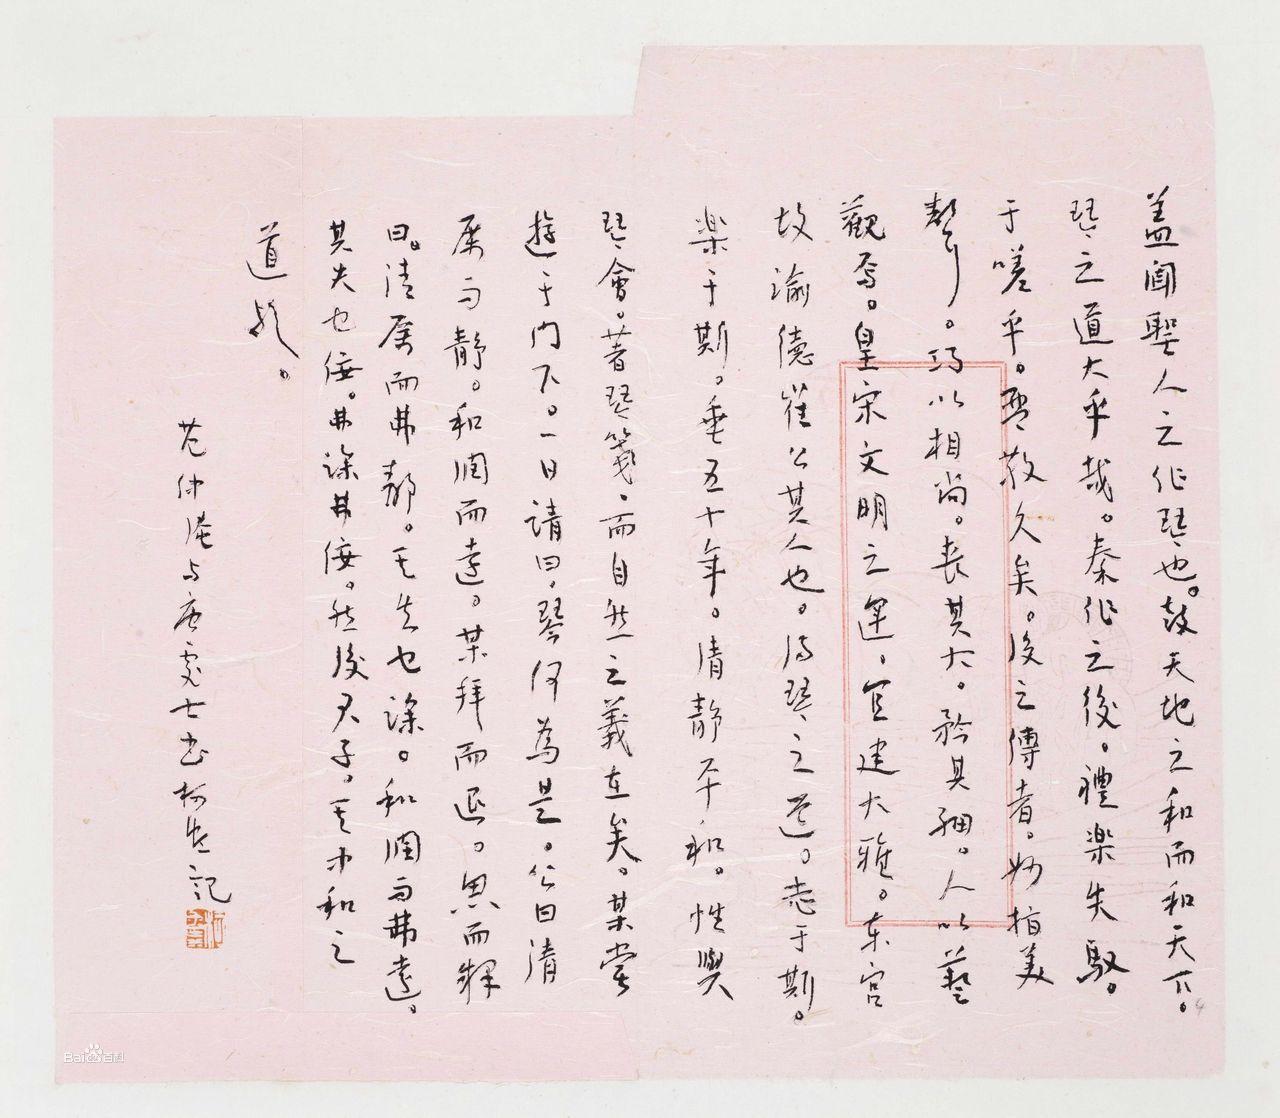 盖闻聖人之作琴也。鼓天地之和而和天下。
琴之道大乎哉。秦作之後。禮楽失馭。
于嗟乎。琴散久矣。後之傳者。妙指美
聲。巧以相尚。丧其大。矜其細。人以藝
觀焉。皇宋文明之運。宜建大雅。东宫
故諭德崔公其人也。得琴之道。志于斯。
楽于斯。垂五十年。清静平和。性與
琴會。著琴箋。而自然之義在矣。某嘗
遊于门下。一日請曰。琴何為是。公曰清
厲而静。和润而遠。某拜而退。思而釋
曰。清厲而弗静。其失也躁。和润而弗遠。
其失也佞。弗躁弗佞。然後君子。其中和之
道欤。
范仲淹与唐處士书 柯 记
Baidu百科
4